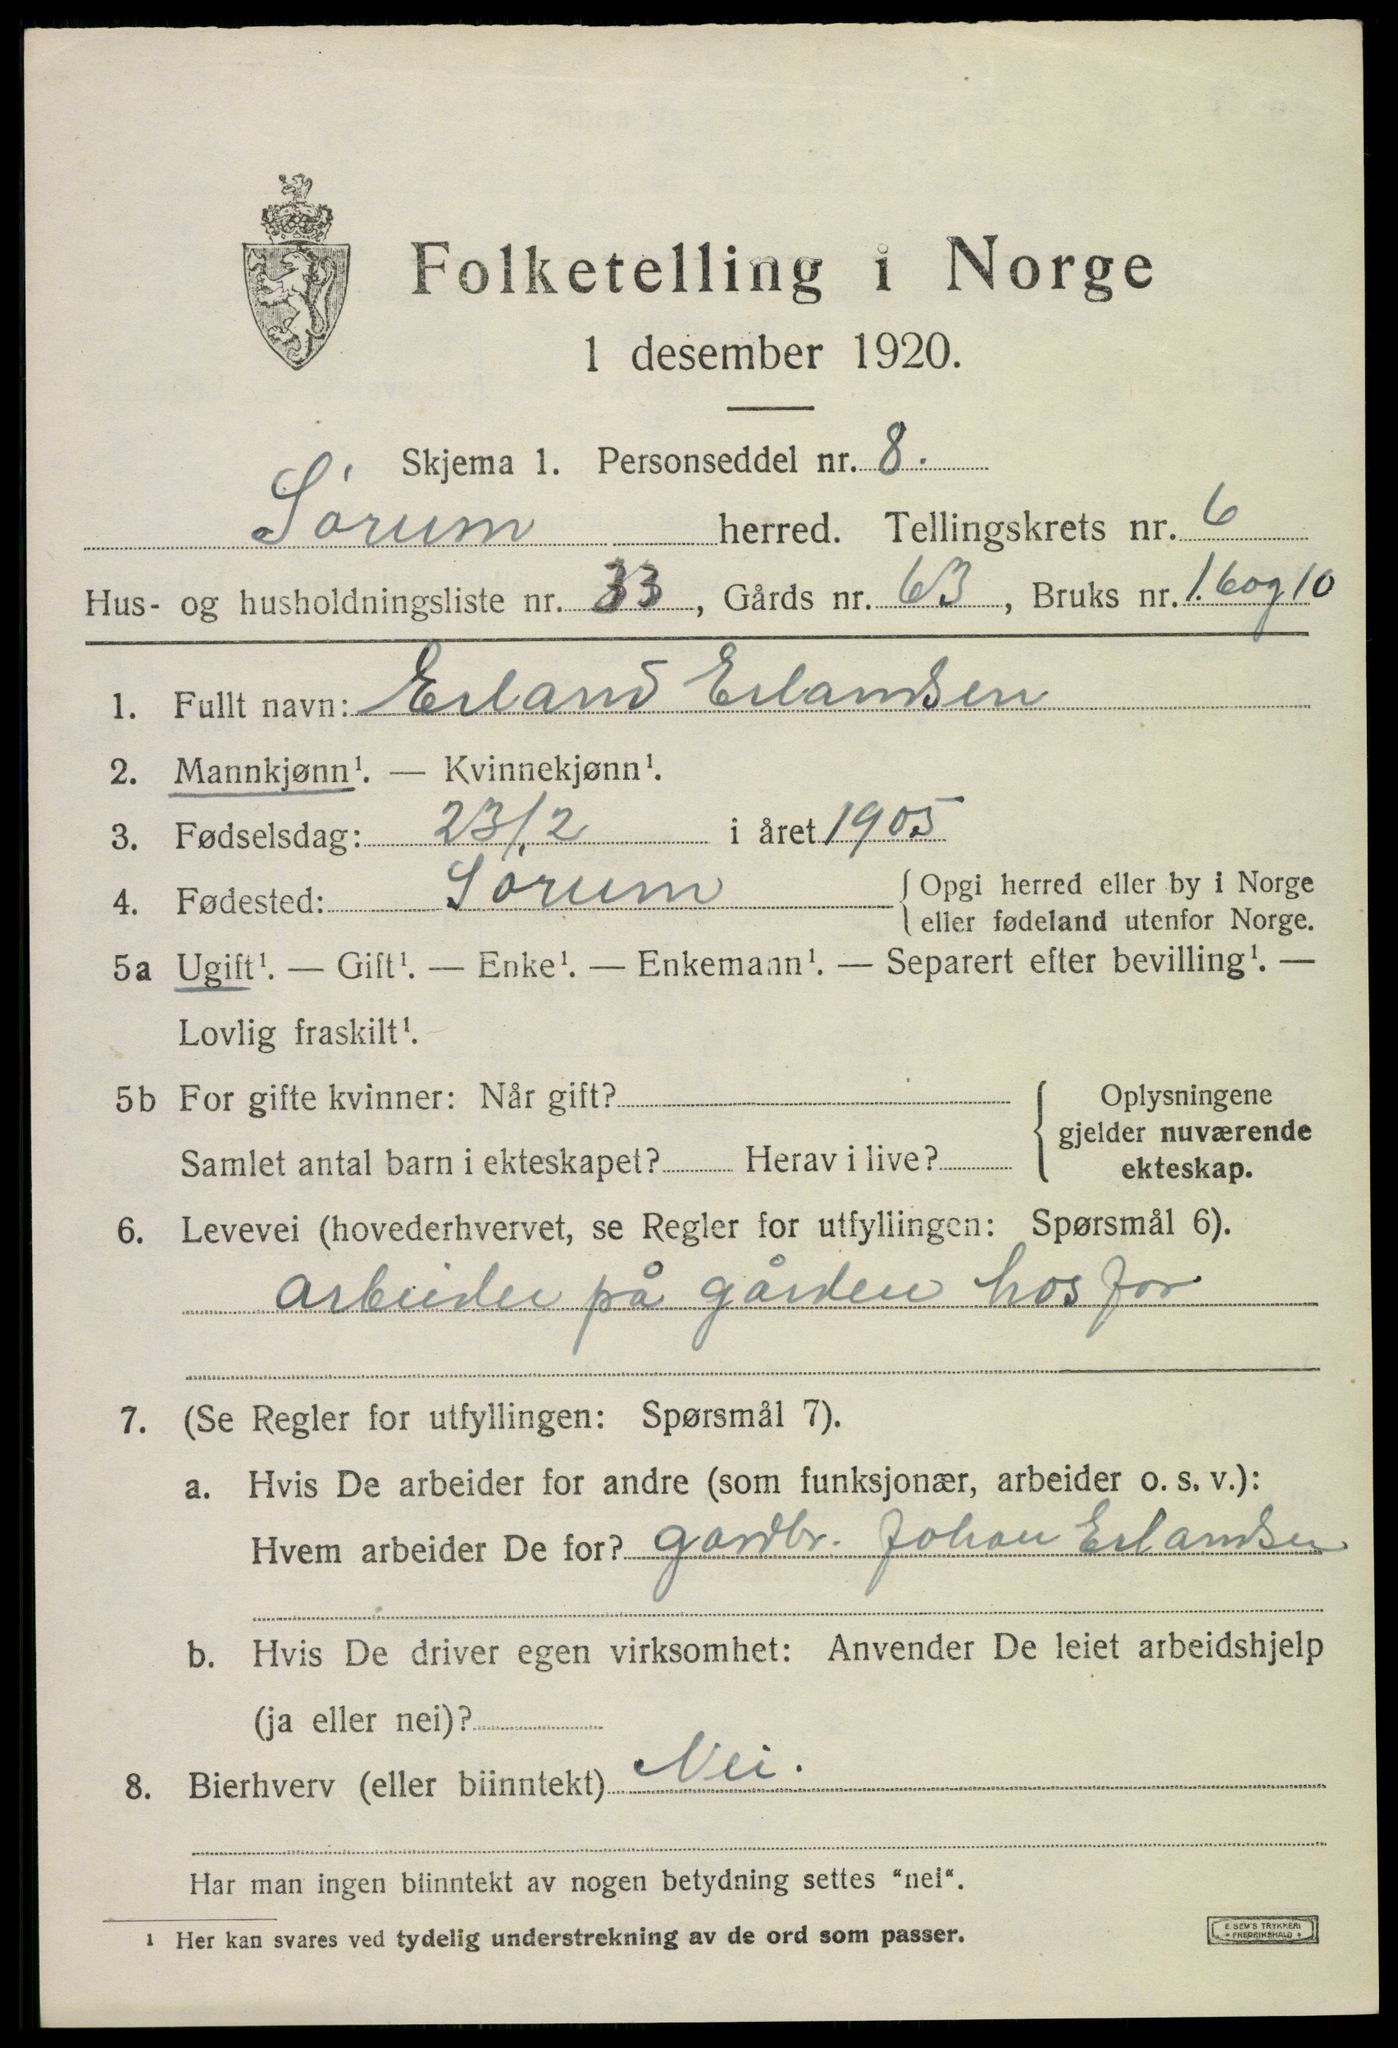 Folketelling i Norge
1 desember 1920.
Skjema 1. Personseddel nr. 8.
Sørum herred. Tellingskrets nr. 6
Hus- og husholdningsliste nr. 33, Gårds nr. 63, Bruks nr. 1.6og10
1. Fullt navn: Erland Erlandsen
2. Mannkjønn¹. — Kvinnekjønn¹.
3. Fødselsdag: 23/2 i året 1905
4. Fødested: Sørum { Opgi herred eller by i Norge
eller fødeland utenfor Norge.
5a Ugift¹. — Gift¹. — Enke¹. — Enkemann¹. — Separert efter bevilling¹. —
Lovlig fraskilt¹.
5b For gifte kvinner: Når gift? { Oplysningene
gjelder nuværende
Samlet antal barn i ekteskapet? Herav i live? ekteskap.
6. Levevei (hovederhvervet, se Regler for utfyllingen: Spørsmål 6).
arbeider på gården hos far
7. (Se Regler for utfyllingen: Spørsmål 7).
a. Hvis De arbeider for andre (som funksjonær, arbeider o. s. v.):
Hvem arbeider De for? gardbr. Johan Erlandsen
b. Hvis De driver egen virksomhet: Anvender De leiet arbeidshjelp
(ja eller nei)?
8. Bierhverv (eller biinntekt) Nei.
Har man ingen biinntekt av nogen betydning settes "nei".
¹ Her kan svares ved tydelig understrekning av de ord som passer.
E. SEM'S TRYKKERI
* FREDRIKSHALD *